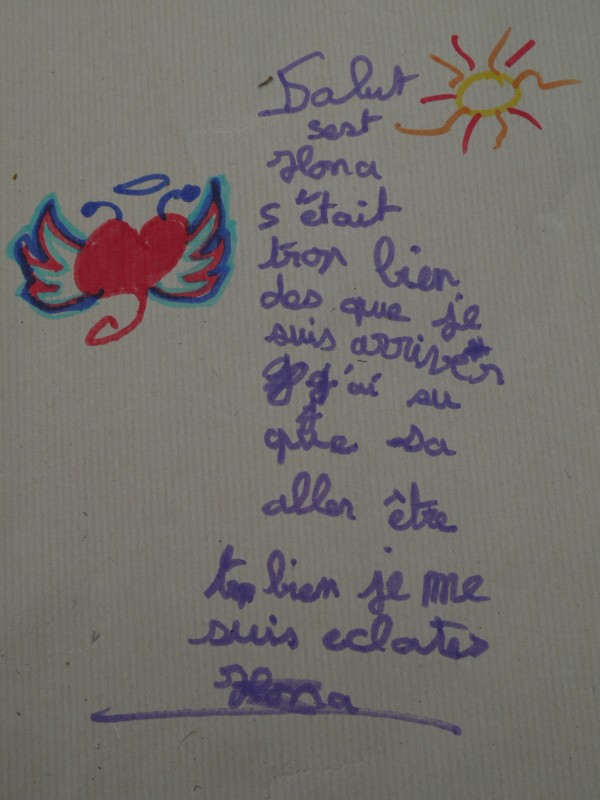 Salut
sest
Ilona
s'était
trop bien
des que je
suis arriver
j'ai su
que sa
aller être
trop bien je me
suis eclates
Ilona